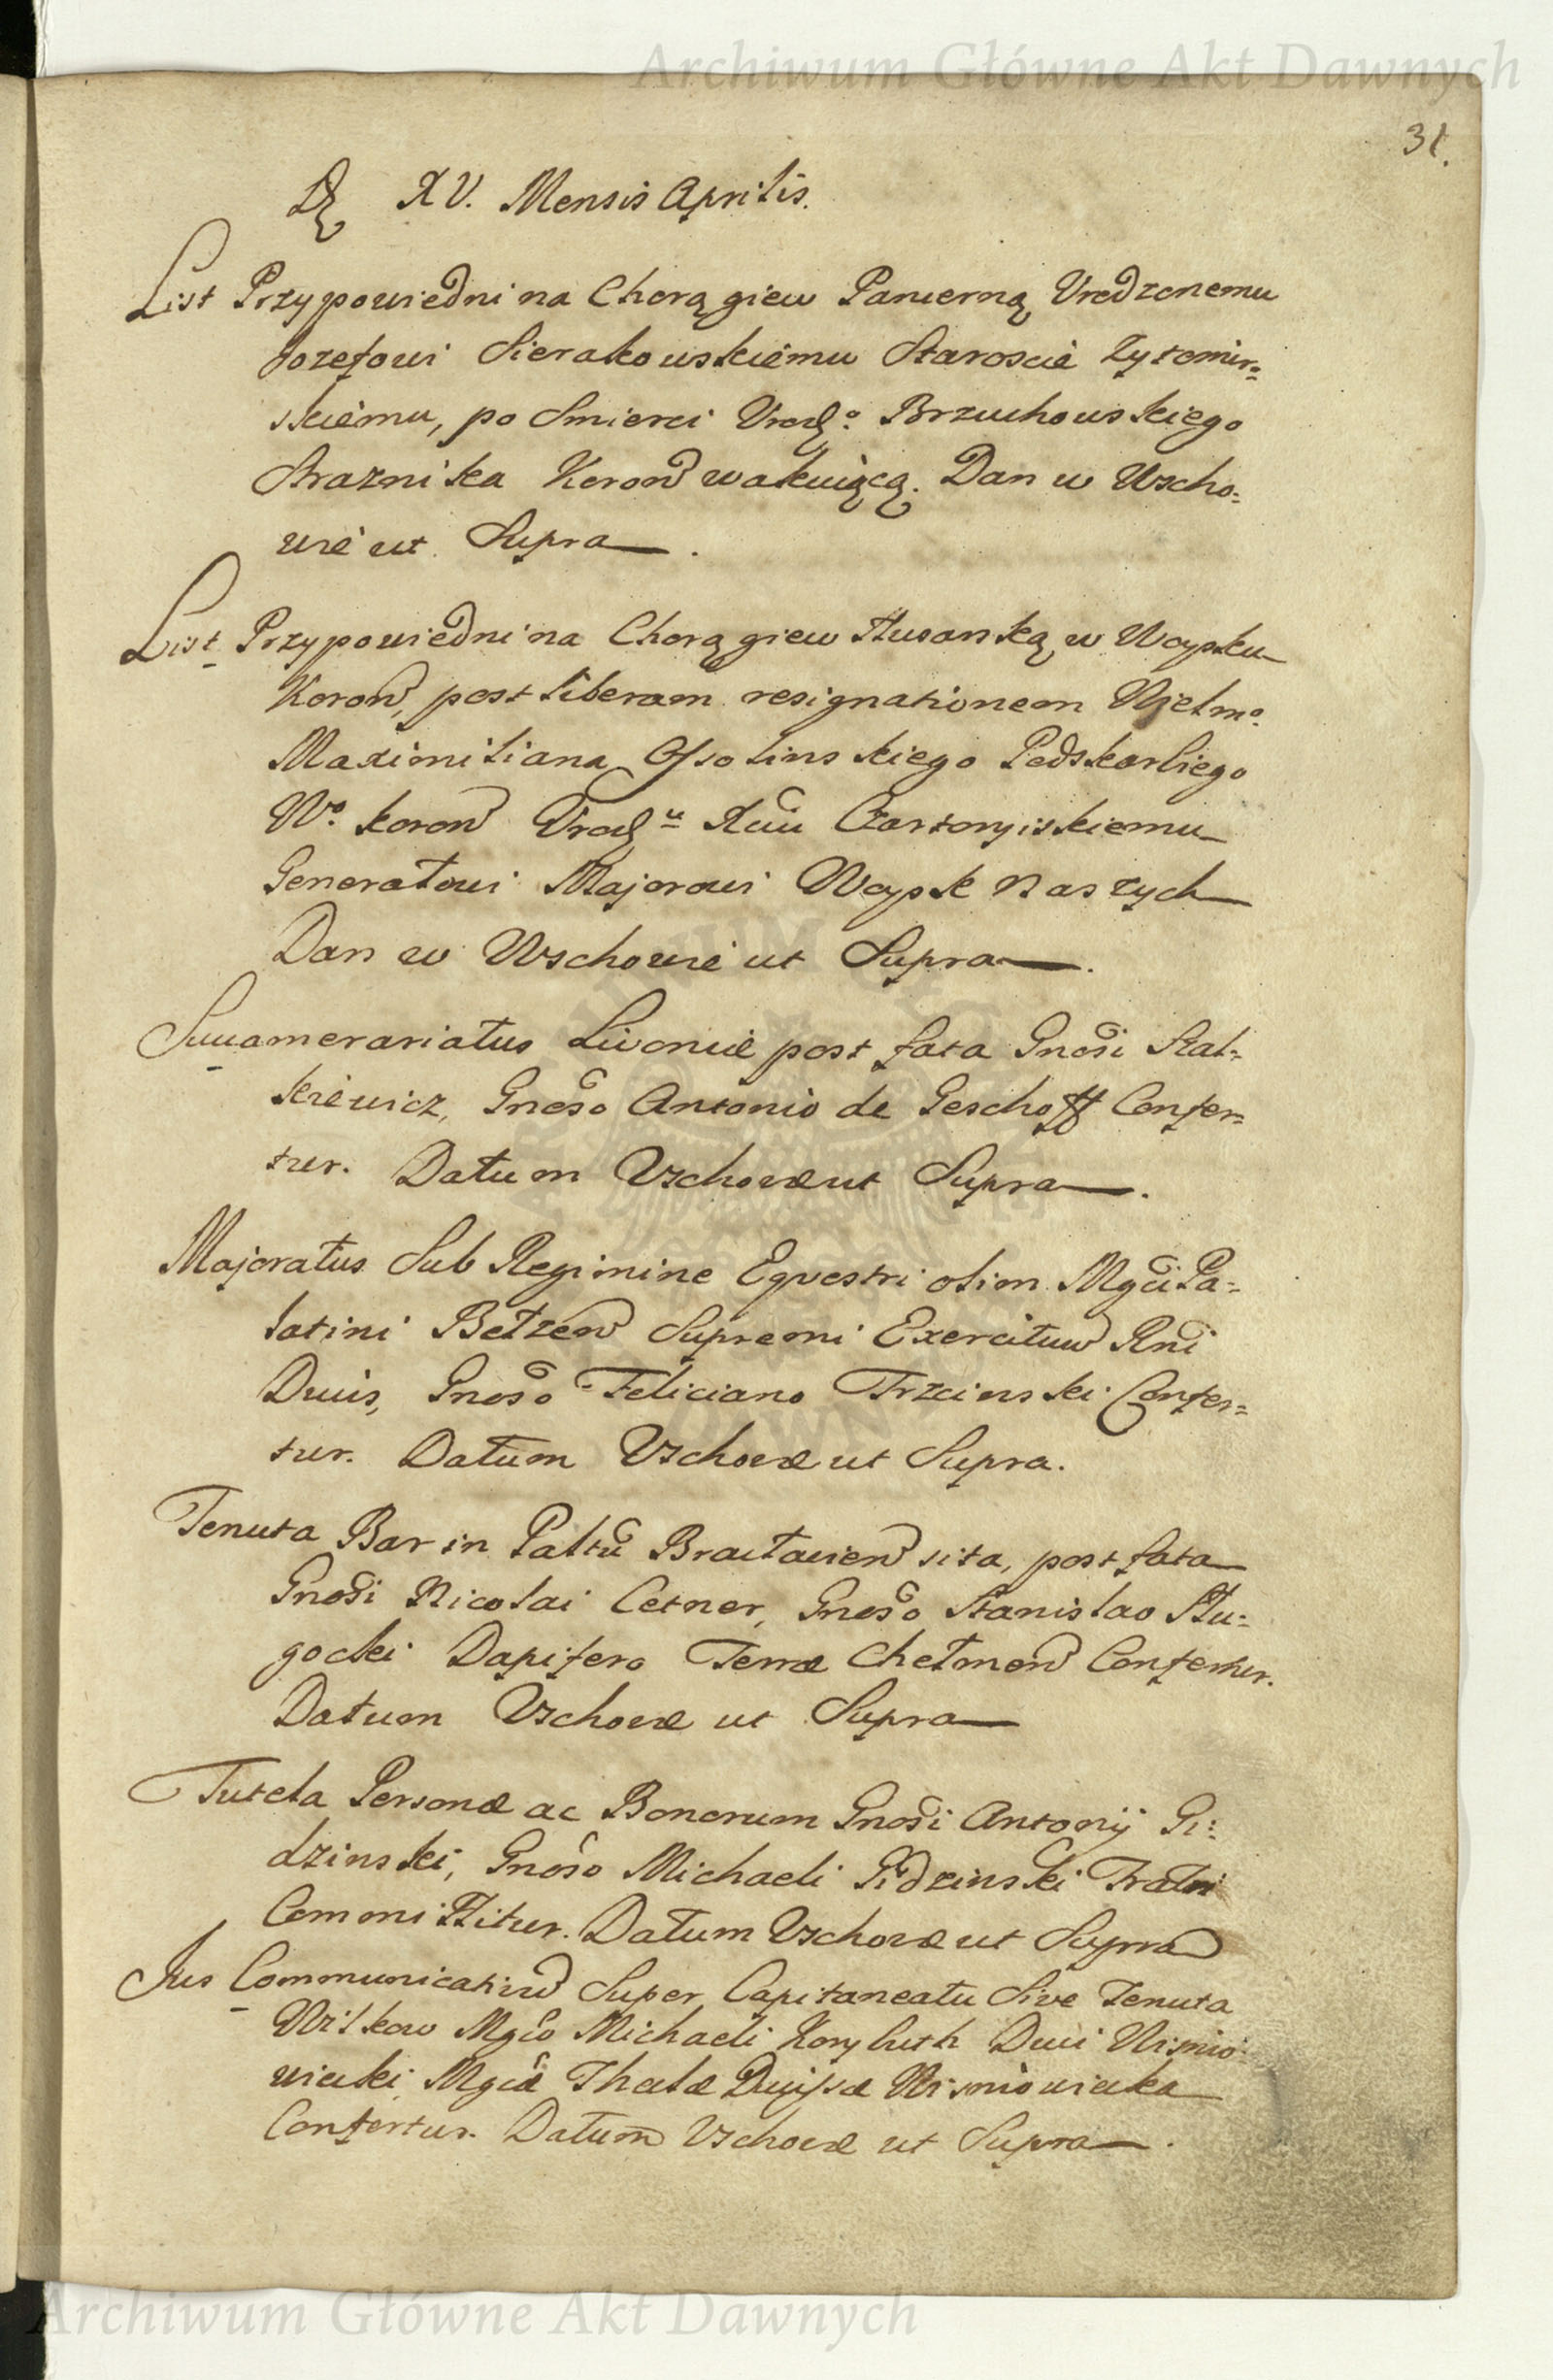 Archiwum Główne Akt Dawnych
31.
XV. Mensis Aprilis.
List Przypowiedni na Chorągiew Pancerną Urodzonemu
Jozefowi Sierakowskiemu Staroscie Zytomir=
skiemu, po Smierci Urodzo Brzuchowskiego
Straznika Koron wakuiącą. Dan w Wscho=
wie ut Supra.
List Przypowiedni na Chorągiew Husarską w Woysku
Koron, post liberam resignationem Wielmo
Maximiliana Ossolinskiego Podskarbiego
Wo koron Urodzu Xciu Czartoryiskiemu
Generałowi Majorowi Woysk Naszych
Dan w Wschowie ut Supra.
Succamerariatus Livoniæ post fata Gnosi
Gnoso Antonio de Geschoff Confer=
tur. Datum Vschovæ ut Supra.
Majoratus Sub Regimine Eqvestri olim Mgci Pa=
latini Bełzen Supremi Exercituu Rni
Ducis, Gnoso Feliciano Trzcinski Confer=
tur. Datum Vschovæ ut Supra.
Tenuta Bar in Palttu Bracłavien sita, post fata
Gnosi Nicolai Cetner, Gnoso Stanislao Dłu=
gocki Dapifero Terræ Chełmen Confertur.
Datum Vschovæ ut Supra
Tutela Personæ ac Bonorum Gnosi Antonij Gi=
dzinski, Gnoso Michaeli Gidzinski Fratri
Committitur. Datum Vschovæ ut Supra
Jus Communicativu Super Capitaneatu Sive Tenuta
Wilkow Mgco Michaeli Korybuth Duci Wisnio=
wiecki Mgcæ Theclæ Ducissæ Wisniowiecka
Confertur. Datum Vschovæ ut Supra.
Archiwum Główne Akt Dawnych